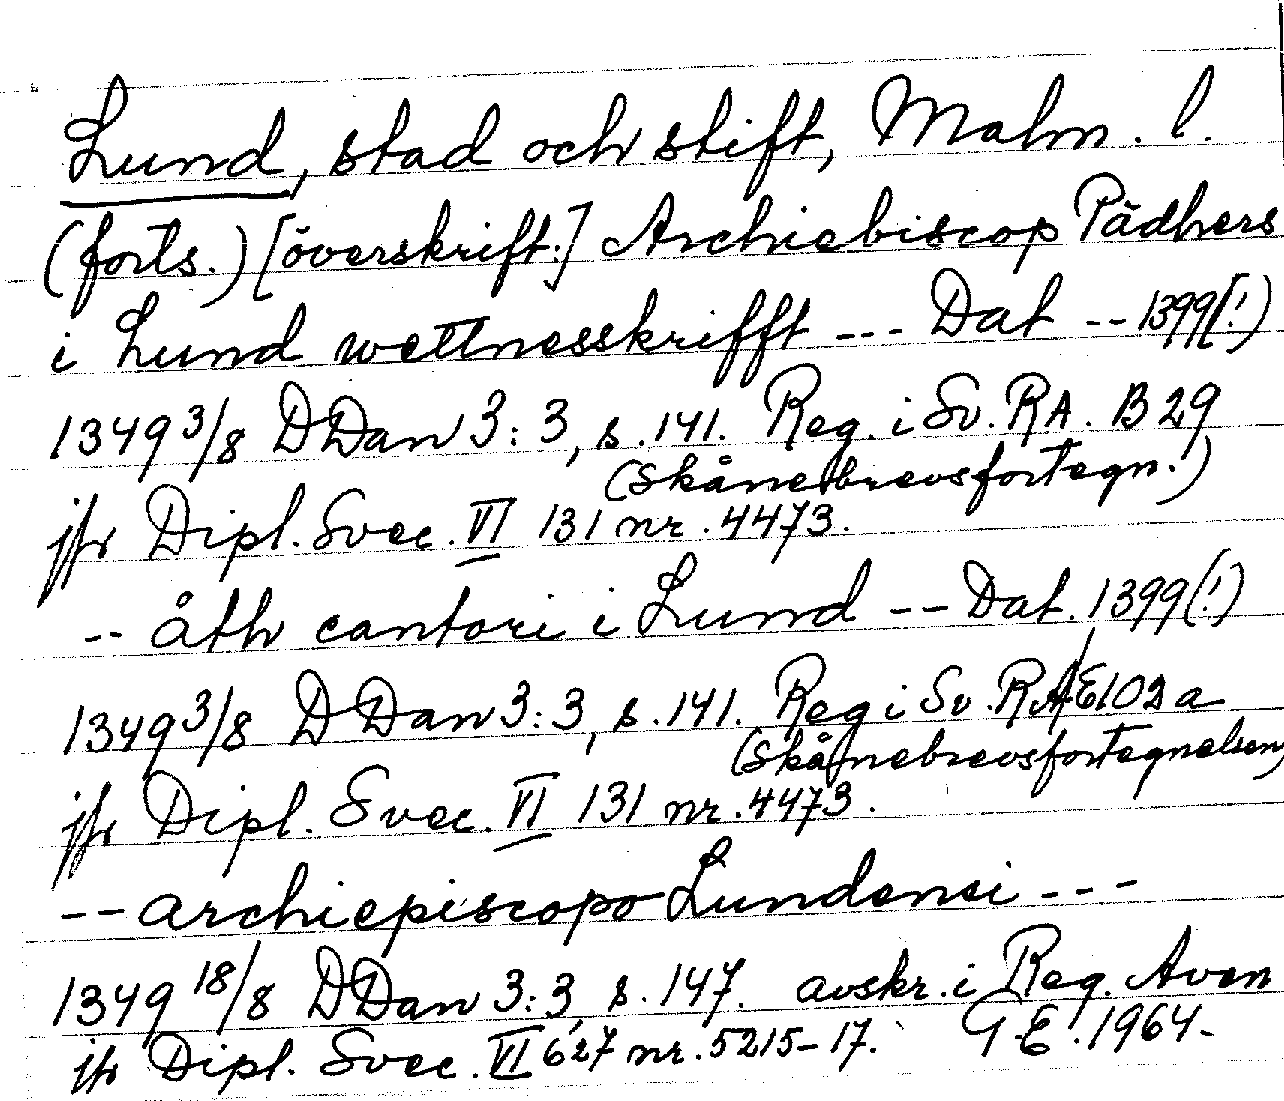 Lund, stad och stift, Malm. l.
(forts.) [överskrift:] Archiebiscop Pädhers
i Lund wettnesskrifft --- Dat -- 1399(!)
1349 3/8 DDan 3:3, s. 141. Reg. i Sv. RA. B 29
(Skånebrevsfortegn.)
jfr Dipl. Svec. VI 131 nr. 4473.
-- åth cantori i Lund -- Dat. 1399(!)
1349 3/8 DDan 3:3, s. 141. Reg i Sv. RA/E102a
(Skånebrevsfortegnelsen)
jfr Dipl. Svec. VI 131 nr. 4473.
-- archiepiscopo Lundensi ---
1349 18/8 DDan 3:3, s. 147. avskr. i Reg. Aven
jfr Dipl. Svec. VI 627 nr. 5215-17. G.E. 1964-